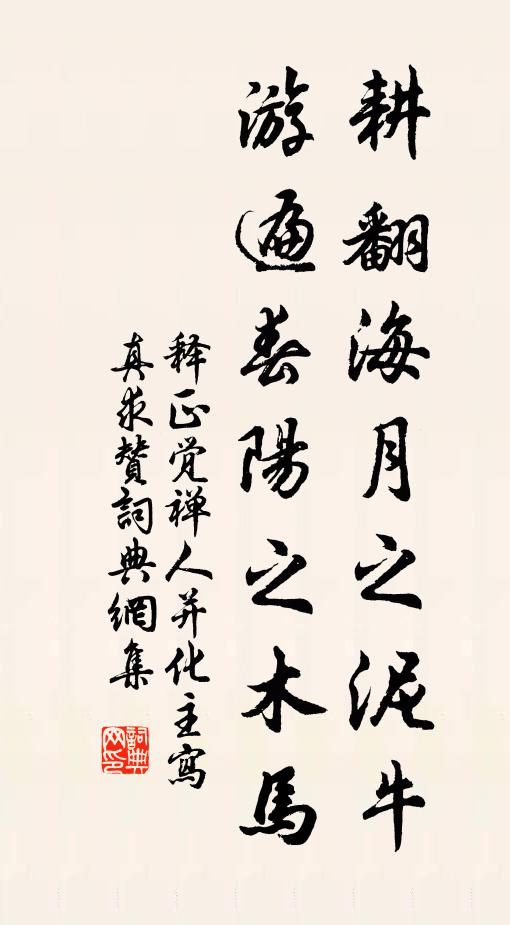 耕翻海月之泥牛
游遍春陽之木馬
释正觉禅人并化主寫
真求贊詞典網集
詞典网印